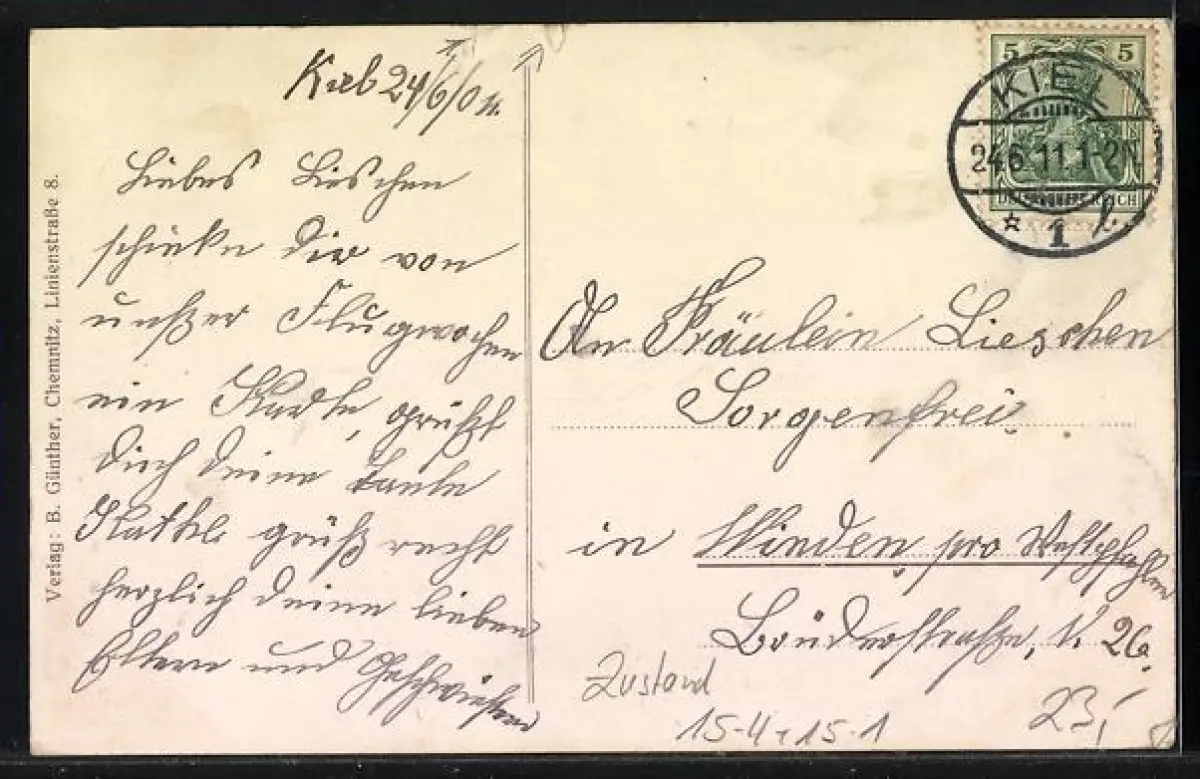 Kiel 24/6/011.
Liebes Lieschen
schicke Dir von
unßer Flugwochen
ein Karte, grüßt
Dich deine Tante
grüß recht
herzlich deine lieben
Eltern und Geschwister
Verlag: B. Günther, Chemnitz, Linienstraße 8.
5 5
DEUTSCHES REICH
KIEL
24.6.11.1-2N.
* 1 l.
An Fräulein Lieschen
Sorgenfrei
in Minden pro Westphahlen
Brüderstraße, № 26.
Zustand
15-4-15-1
23,